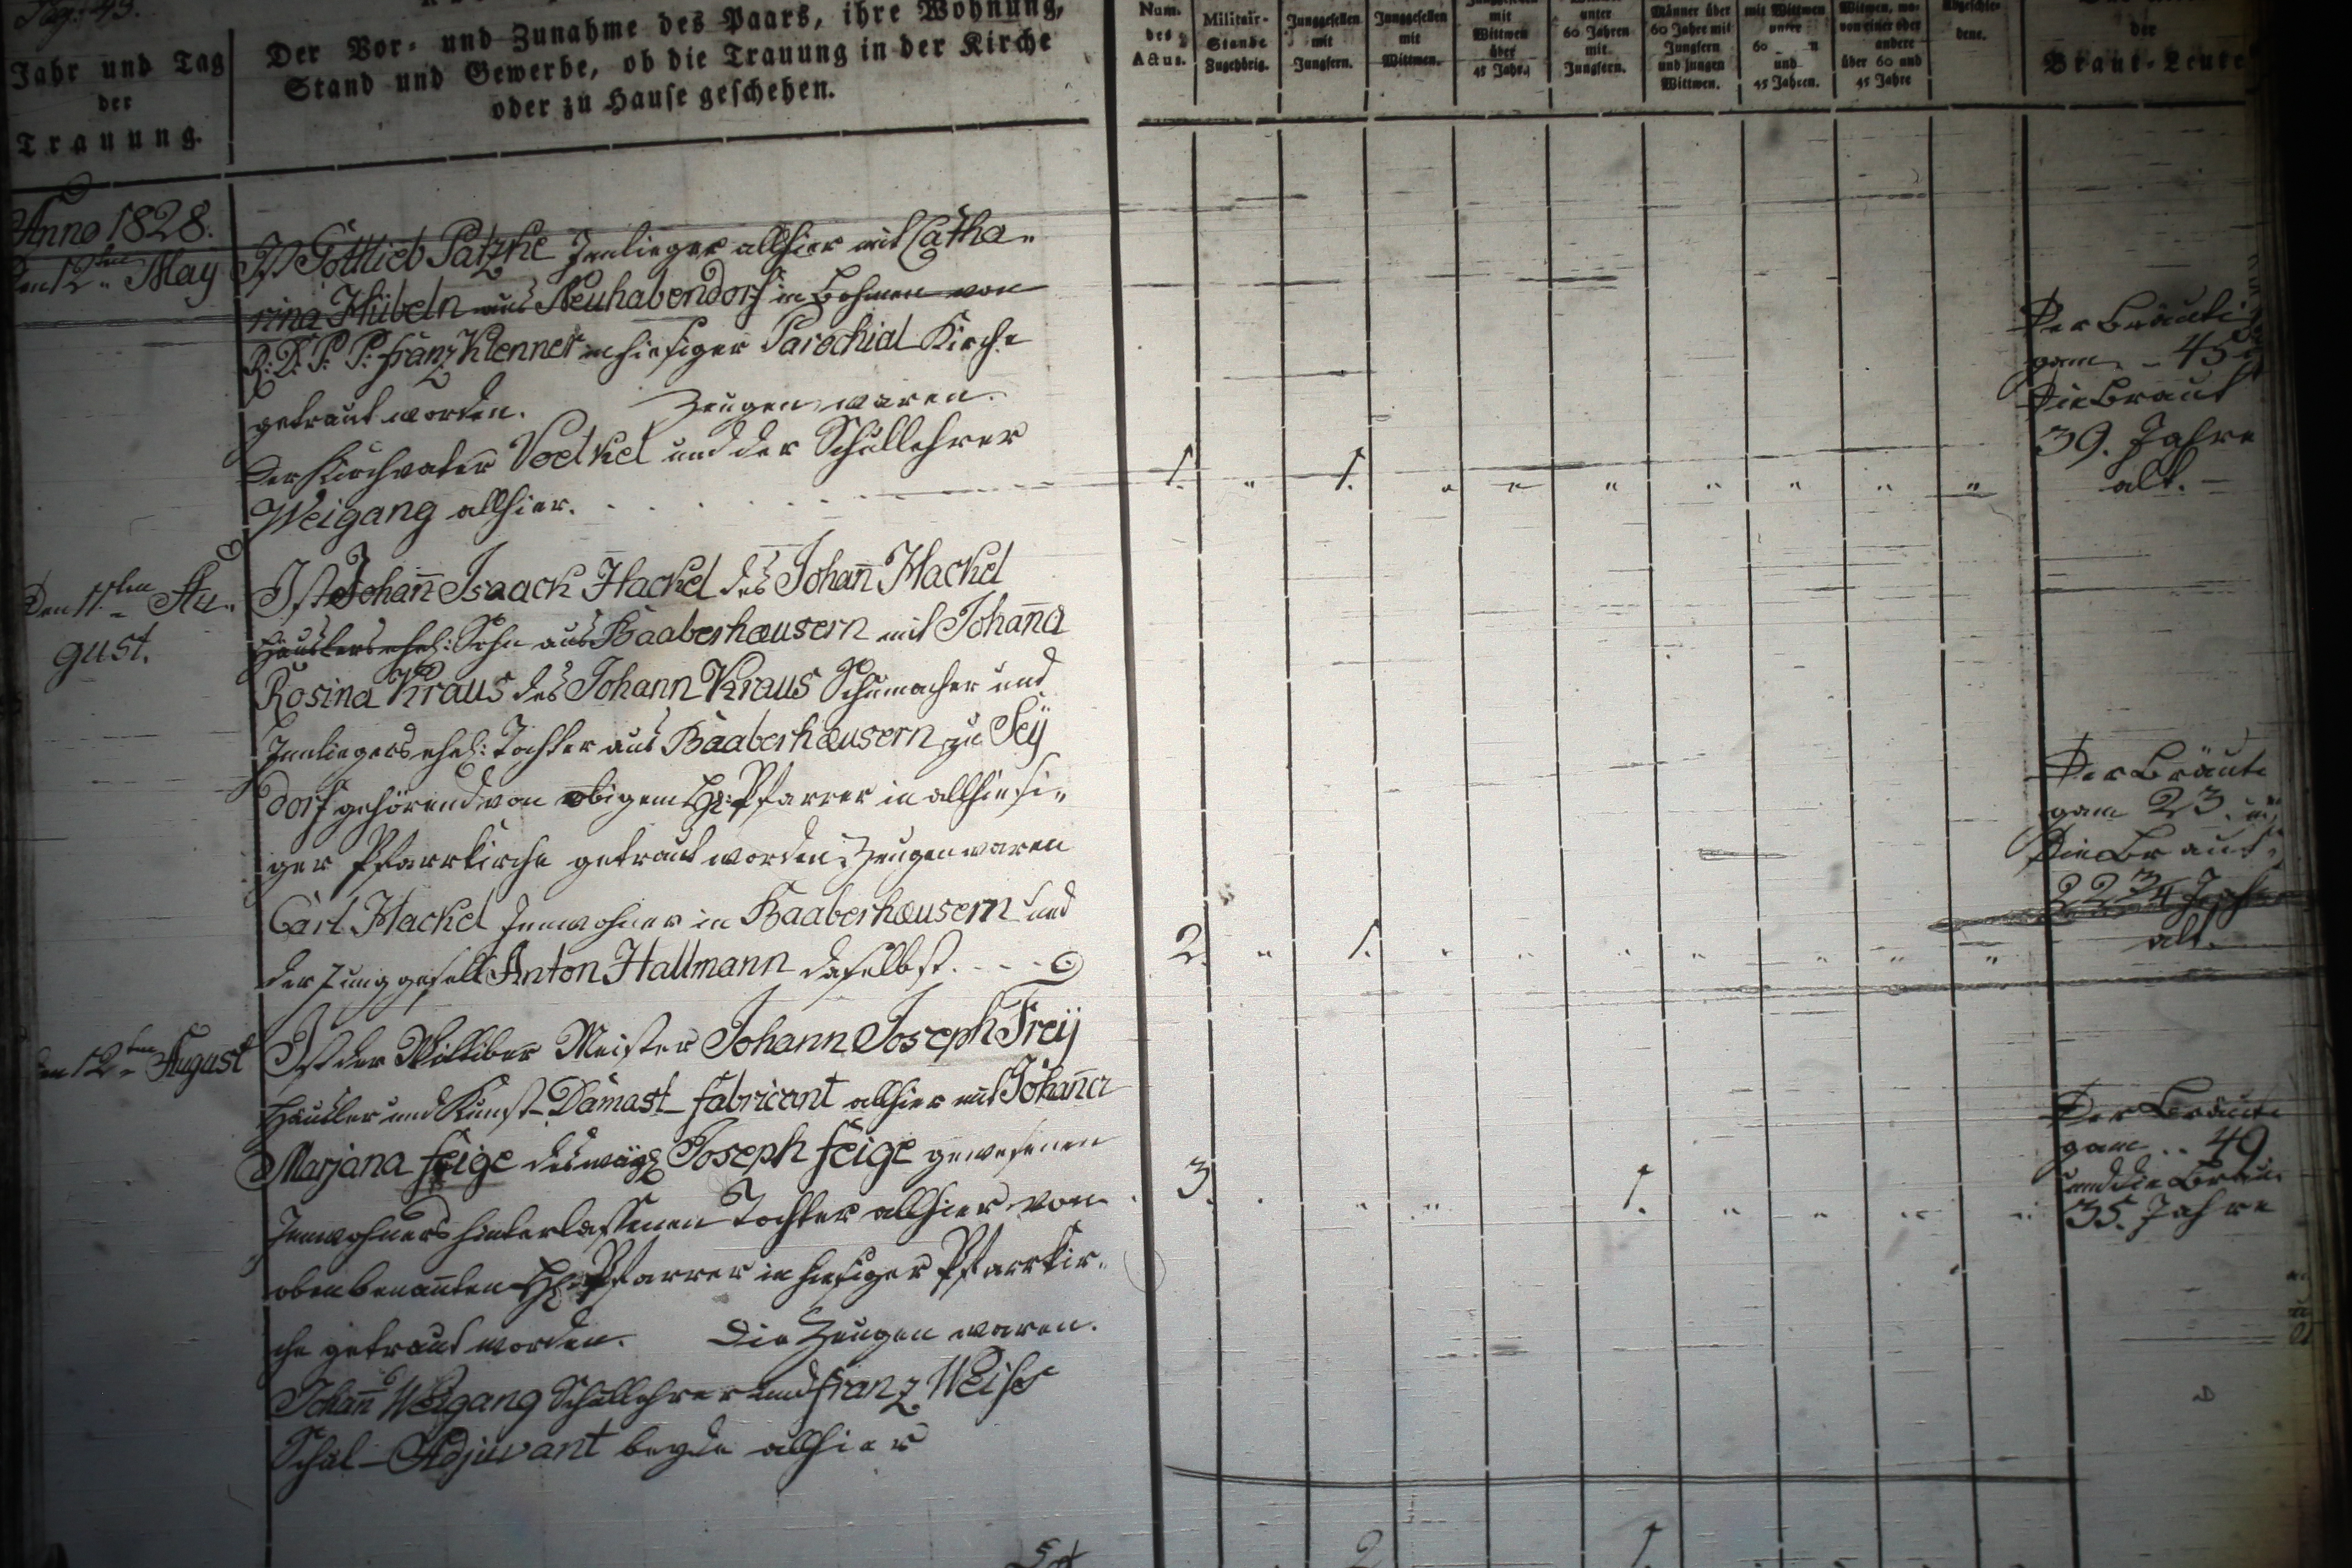 Pag. 49.
Jahr und Tag
der
Trauung.
Der Vor- und Zunahme des Paars, ihre Wohnung,
Stand und Gewerbe, ob die Trauung in der Kirche
oder zu Hause geschehen.
Num.
des
Actus.
Militair-
Stande
Zugehörig.
Junggesellen
mit
Jungfern.
Junggesellen
mit
Wittwen.
mit
Wittwen
über
45 Jahr.
unter
60 Jahren
mit
Jungfern.
Männer über
60 Jahre mit
Jungfern
und jungen
Wittwen.
mit Wittwen
unter
60
und
45 Jahren.
Witwen, wo-
von einer oder
andere
über 60 und
45 Jahre
Abgeschie-
dene.
der
Braut-Leute
Anno 1828.
den 12ten May
Ist Gottlieb Patzke Innlieger allhier mit Catha-
rina Hübeln aus Neuhabendorf in Bohmen von
R: D: P: P: Franz Klenner in hiesiger Parochial Kirche
getraut worden. Zeugen waren.
der Kirchvater Voelkel und der Schullehrer
Weigang allhier.
1. " 1. " " " " " " "
Der Bräuti
gam - 45
Die Braut
39. Jahre
alt.
Den 11ten Au-
gust.
Ist Johann Isaack Hackel des Johann Hackel
Häuslers ehel: Sohn aus Baaberhæusern mit Johanna
Rosina Kraus des Johann Kraus Schumacher und
Innliegers ehel: Tochter aus Baaberhæusern zu Seÿ
dorf gehörend von obigem H: Pfarrer in allhiesi-
ger Pfarrkirche getraut worden. Zeugen waren
Carl Hackel Innwohner in Baaberhæusern und
der Junggesell Anton Hallmann daselbst.
2. " 1. " " " " " " "
Der Bräuti
gam 23. u
Die Braut
22 3/4 Jahr
alt.
den 12ten August
Ist der Wittiber Meister Johann Joseph Freÿ
Häusler und Kunst-Damast-fabricant allhier mit Johanna
Marjana Feige des Joseph Feige gewesenen
Innwohners hinterlassenen Tochter allhier von
obenbenannten H: Pfarrer in hiesiger Pfarrkir-
che getraut worden. Die Zeugen waren.
Johann Weigang Schullehrer und Franz Weiss
Schul-Adjuvant beyde allhier
3. " " " 1. " " " "
Der Bräuti
gam .. 49
und die Brau
35. Jahre
2 1.